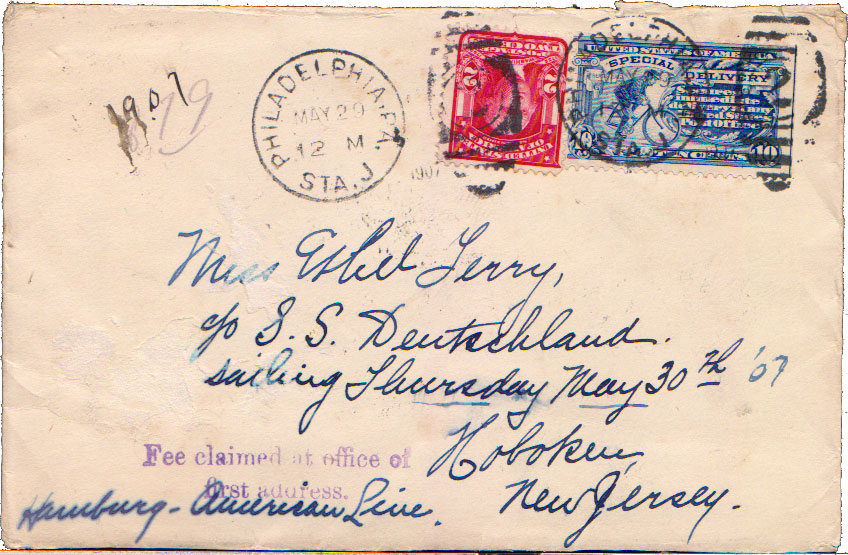 1907
PHILADELPHIA, PA.
MAY 29
12 M
STA. J
1907
UNITED STATES OF AMERICA
SPECIAL DELIVERY
TEN CENTS
10
2
2
Miss Ethel Terry,
c/o S. S. Deutschland.
sailing Thursday May 30th '07
Hoboken
New Jersey.
Fee claimed at office of
first address.
Hamburg-American Line.